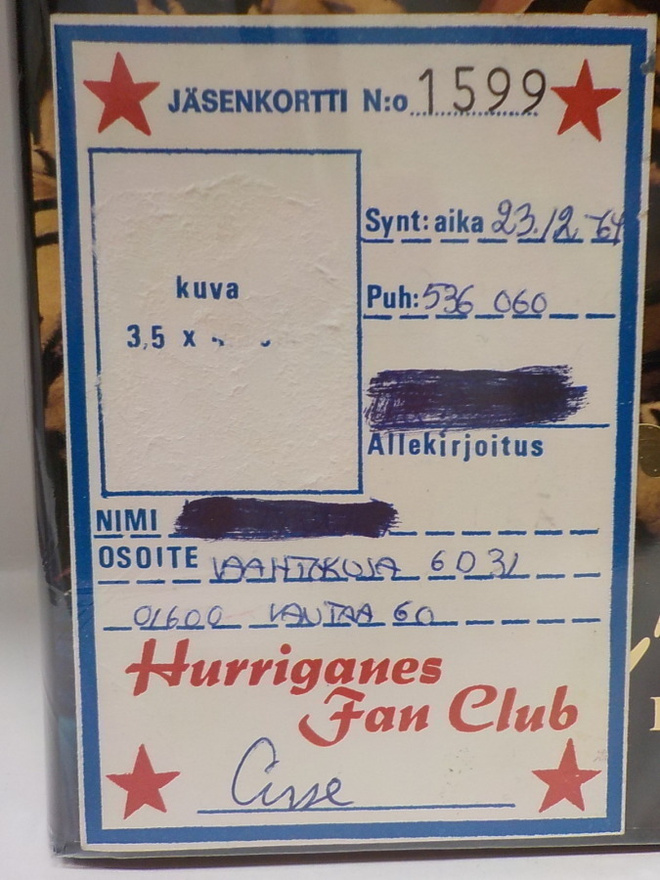 JÄSENKORTTI N:o 1599
kuva
3,5 x
Synt: aika 23.12-64
Puh: 536 060
Allekirjoitus
NIMI
OSOITE VAAHTOKUJA 6 D 31
01600 VANTAA 60
Hurriganes
Fan Club
Cisse